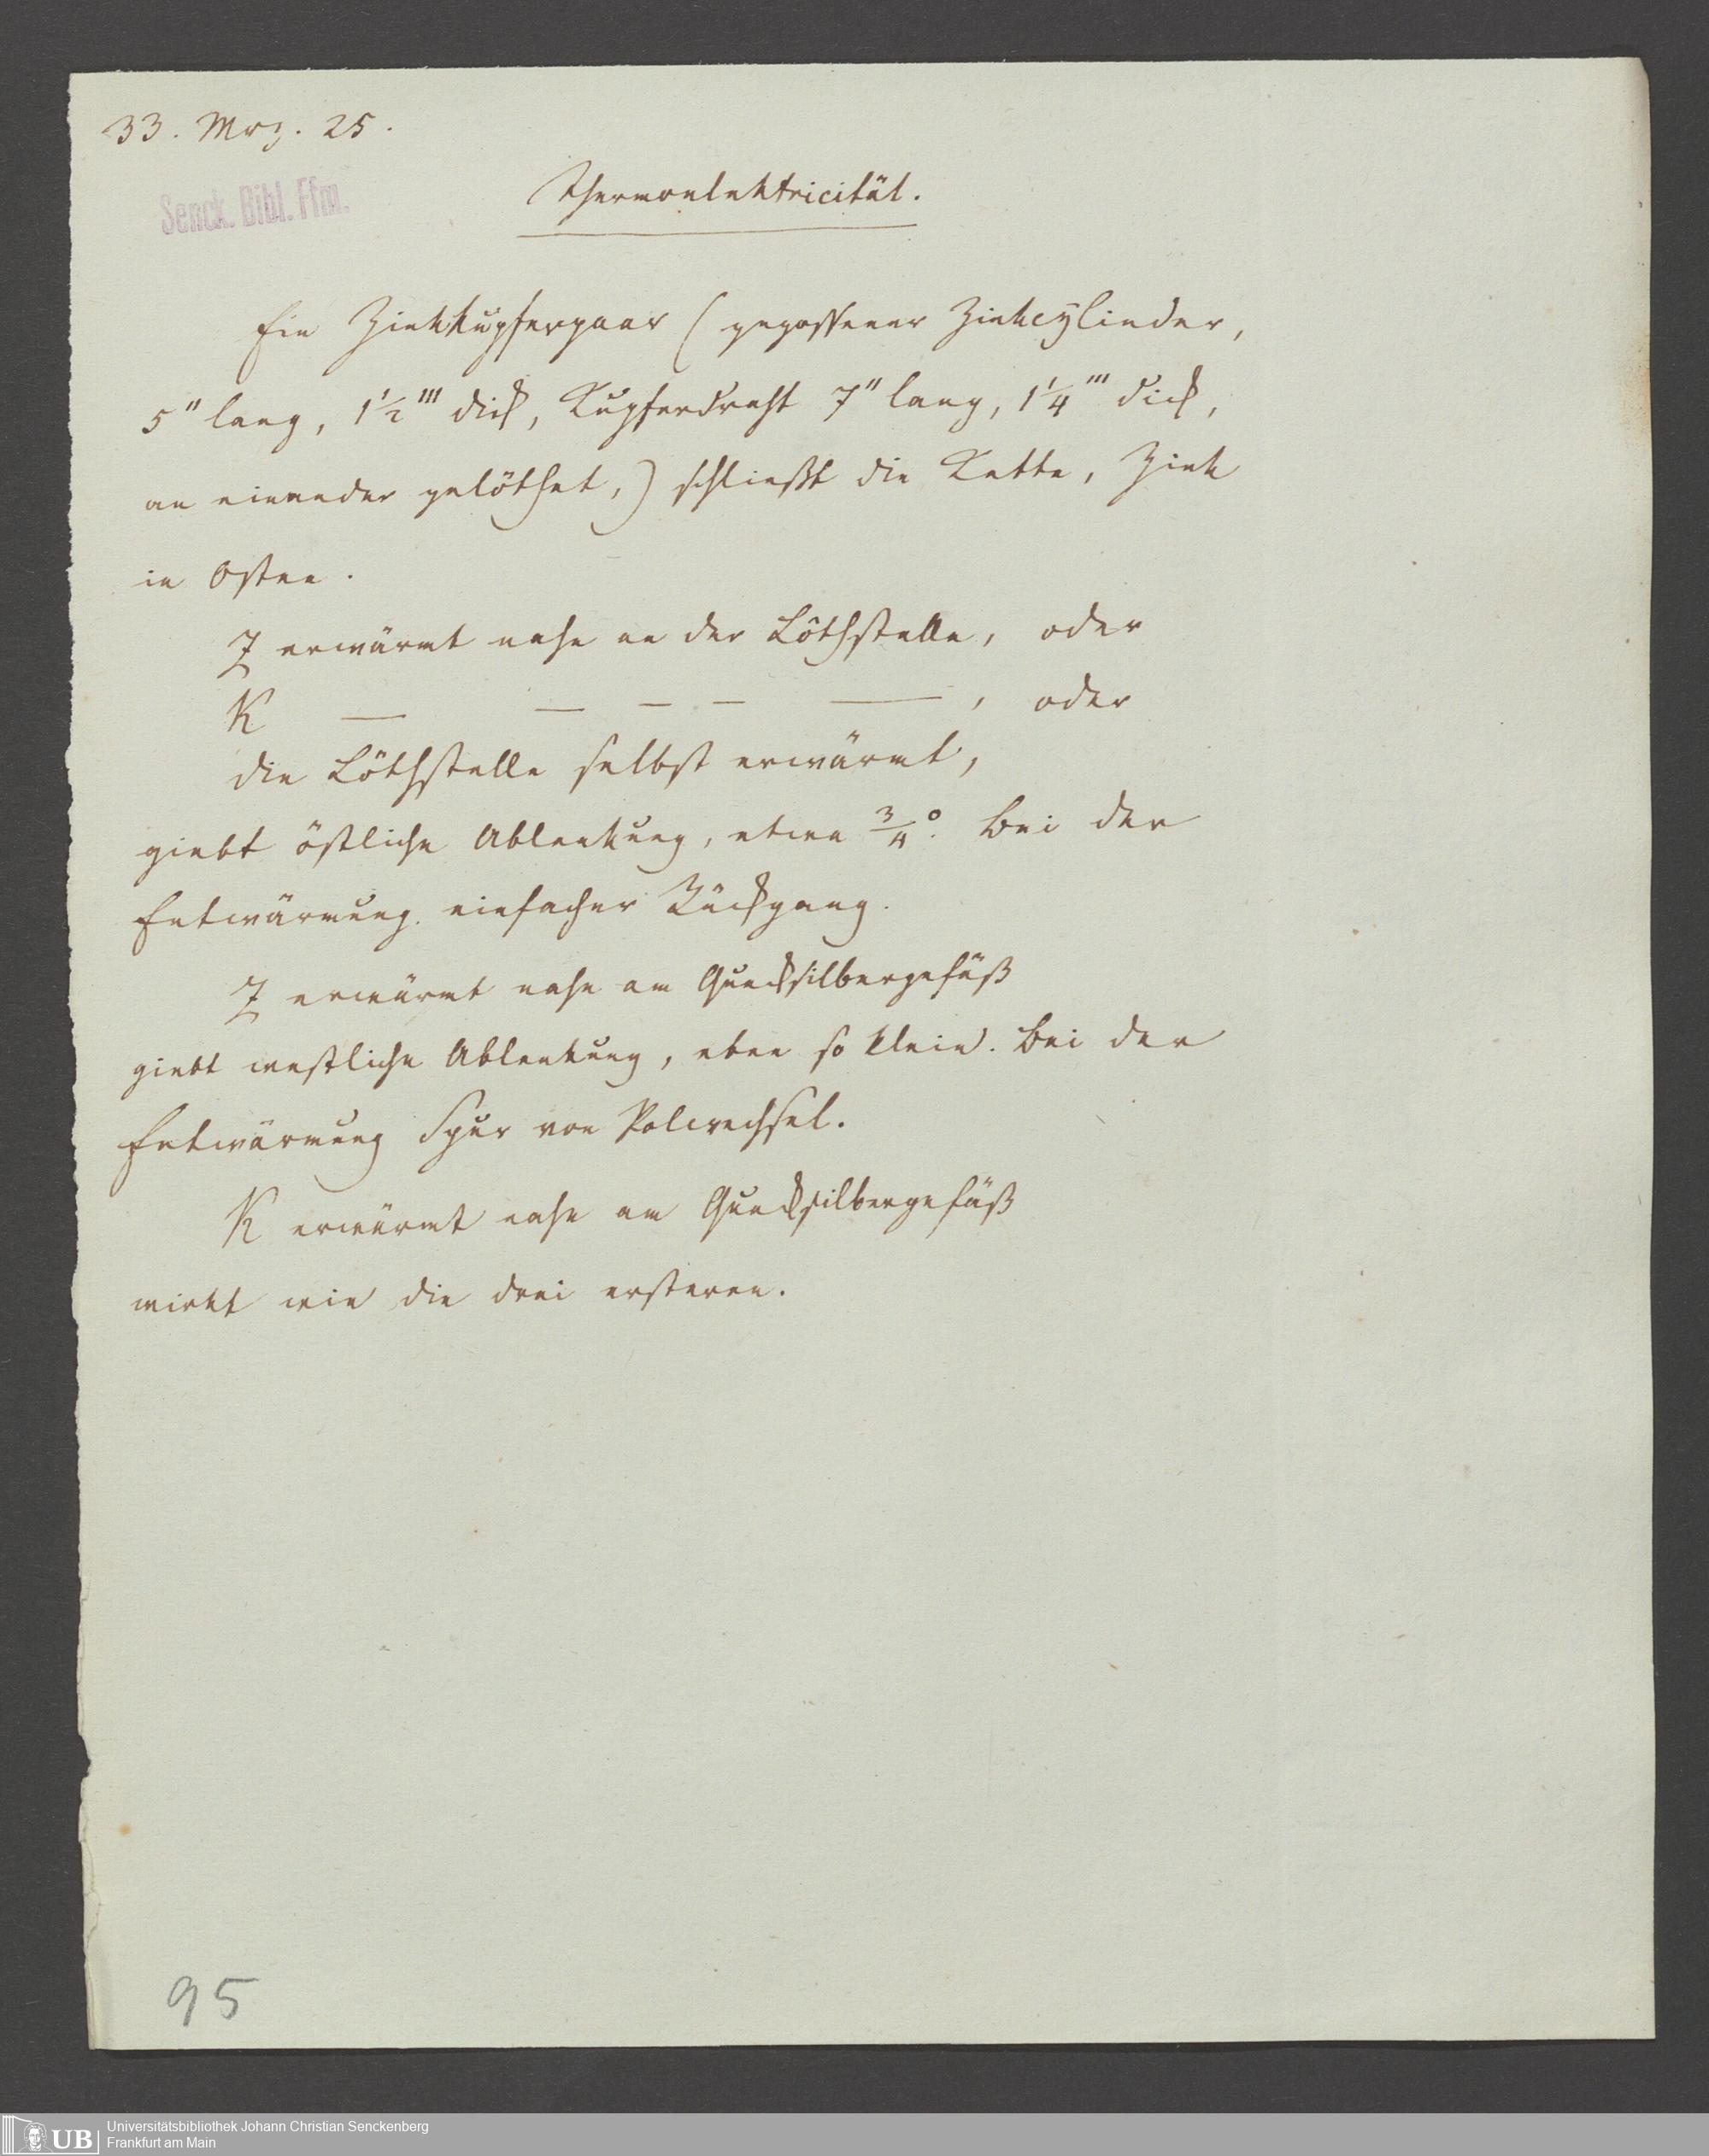 33. Mrz. 25.
Senck. Bibl. Ffm.
Thermoelektricität.
Ein Zinkkupferpaar (gegossener Zinkcylinder,
5" lang, 1½''' dick, Kupferdraht 7" lang, 1¼''' dick,
an einander gelöthet,) schließt die Kette, Zink
in Osten.
Z erwärmt nahe an der Löthstelle, oder
K — — — — —, oder
die Löthstelle selbst erwärmt,
giebt östliche Ablenkung, etwa ¾°. Bei der
Entwärmung einfacher Rückgang.
Z erwärmt nahe am Quecksilbergefäß
giebt westliche Ablenkung, eben so klein. Bei der
Entwärmung Spur von Polwechsel.
K erwärmt nahe am Quecksilbergefäß
wirkt wie die drei ersteren.
95
UB
Universitätsbibliothek Johann Christian Senckenberg
Frankfurt am Main